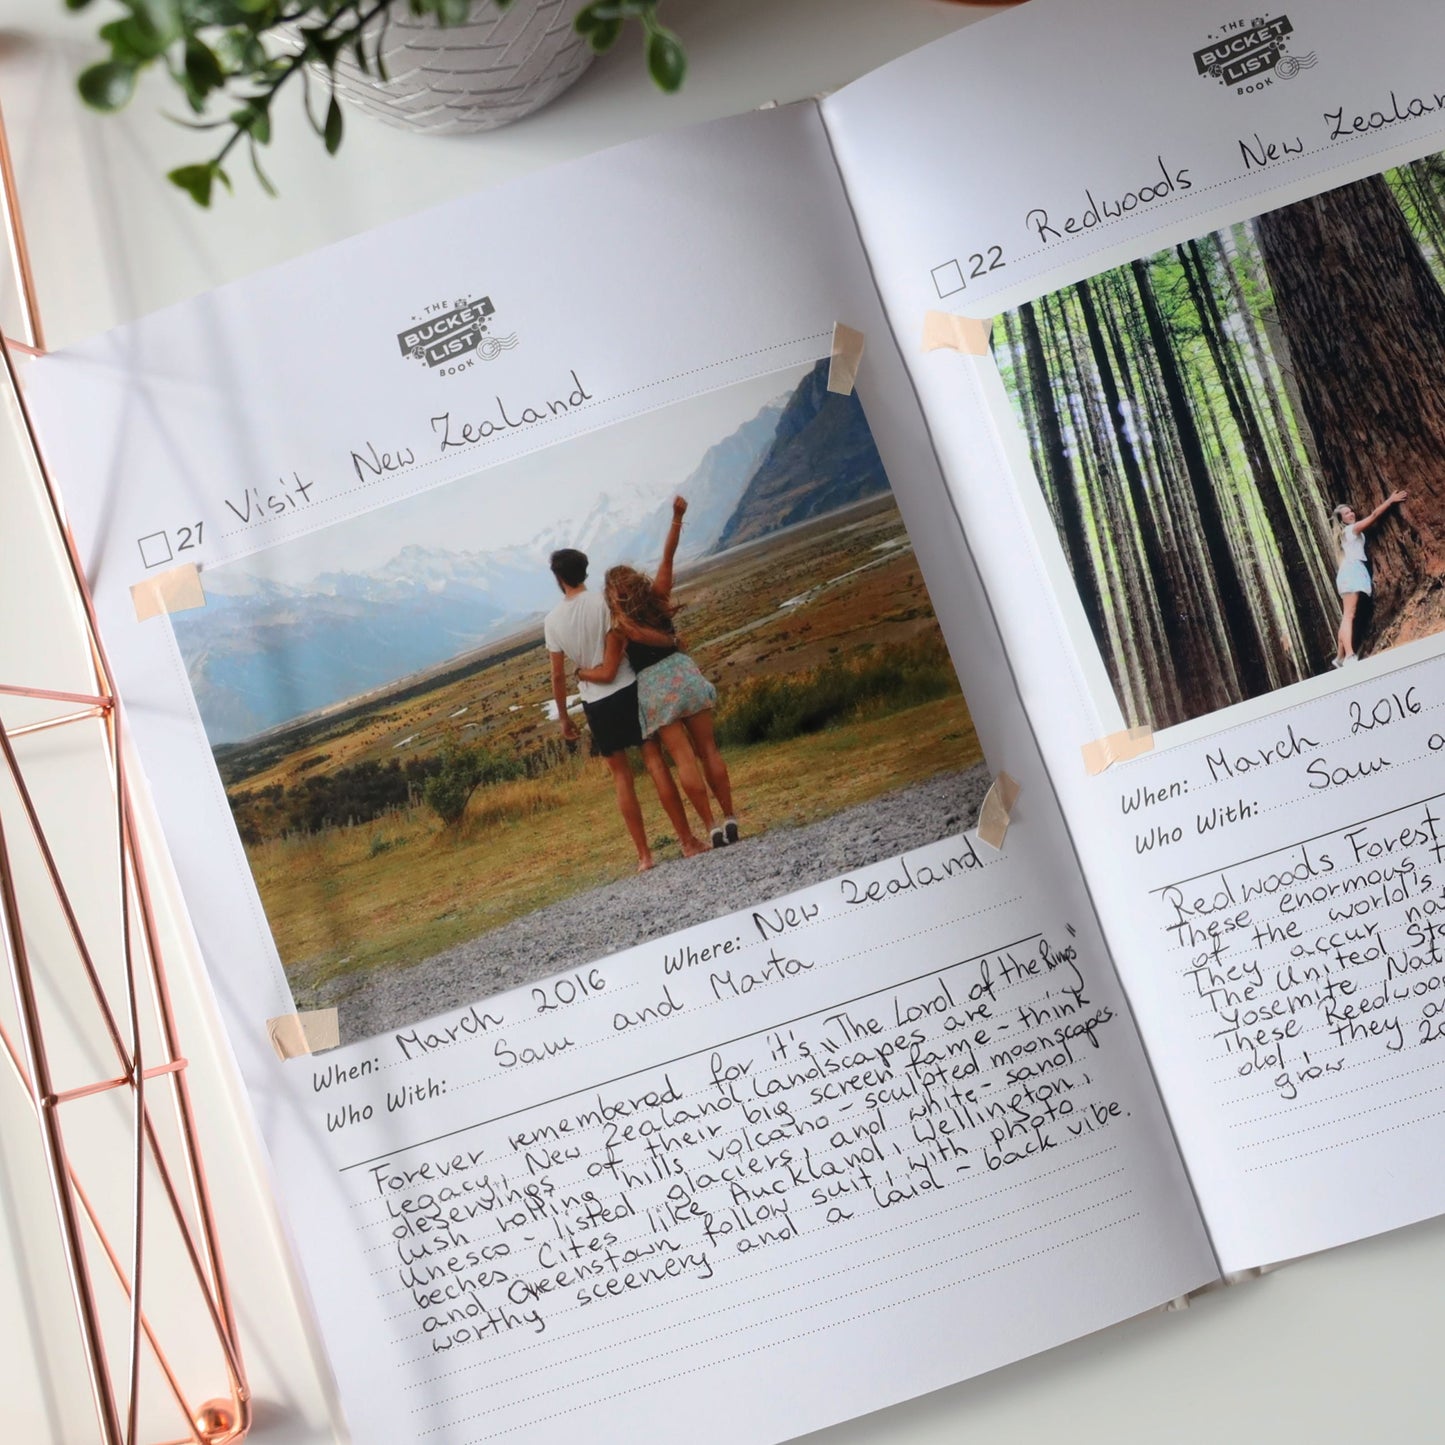 THE
BUCKET
LIST
BOOK
21 Visit New Zealand
When: March 2016 Where: New Zealand
Who With: Sam and Marta
Forever remembered for it's „The Lord of the Rings"
legacy, New Zealand. Landscapes are
deservings of their big screen fame - think
lush rolling hills volcano - sculpted moonscapes.
Unesco - listed glaciers, and white - sand
beches. Cites like Auckland, Wellington,
and Queenstown follow suit, with photo
worthy sceenery and a laid - back vibe.
THE
BUCKET
LIST
BOOK
22 Redwoods New
When: March 2016
Who With: Sam
Redwoods Forest
These enormous
of the world's
They accur
The United
Yosemite
These Reedwoo
old, they
grow